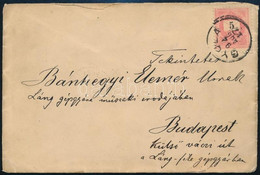 GYULA
Tekintetes
Bánhegyi Elemér Urnak
Láng gépgyár műszaki irodájában
Budapest
Külső váczi út
a Láng-féle gépgyárban